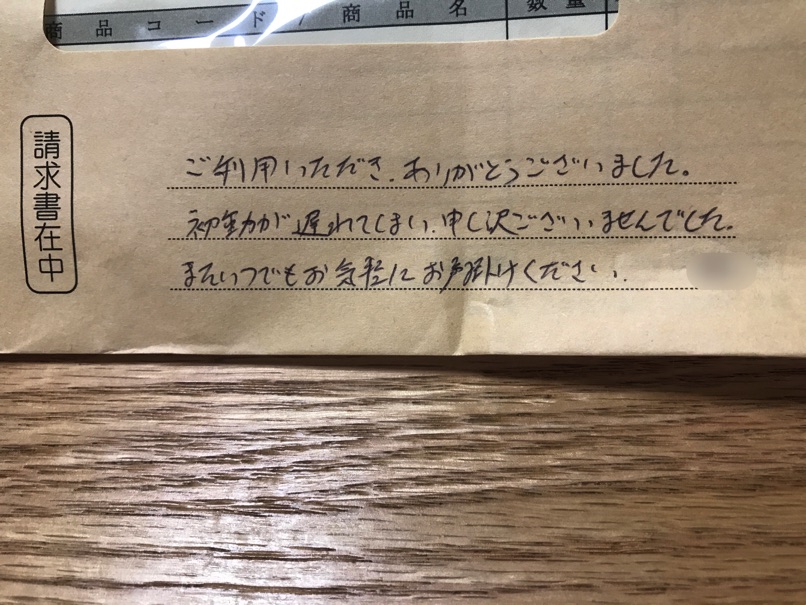 商品コード / 商品名 数量
請求書在中
ご利用いただき、ありがとうございました。
初動が遅れてしまい、申し訳ございませんでした。
またいつでもお気軽にお声掛けください。